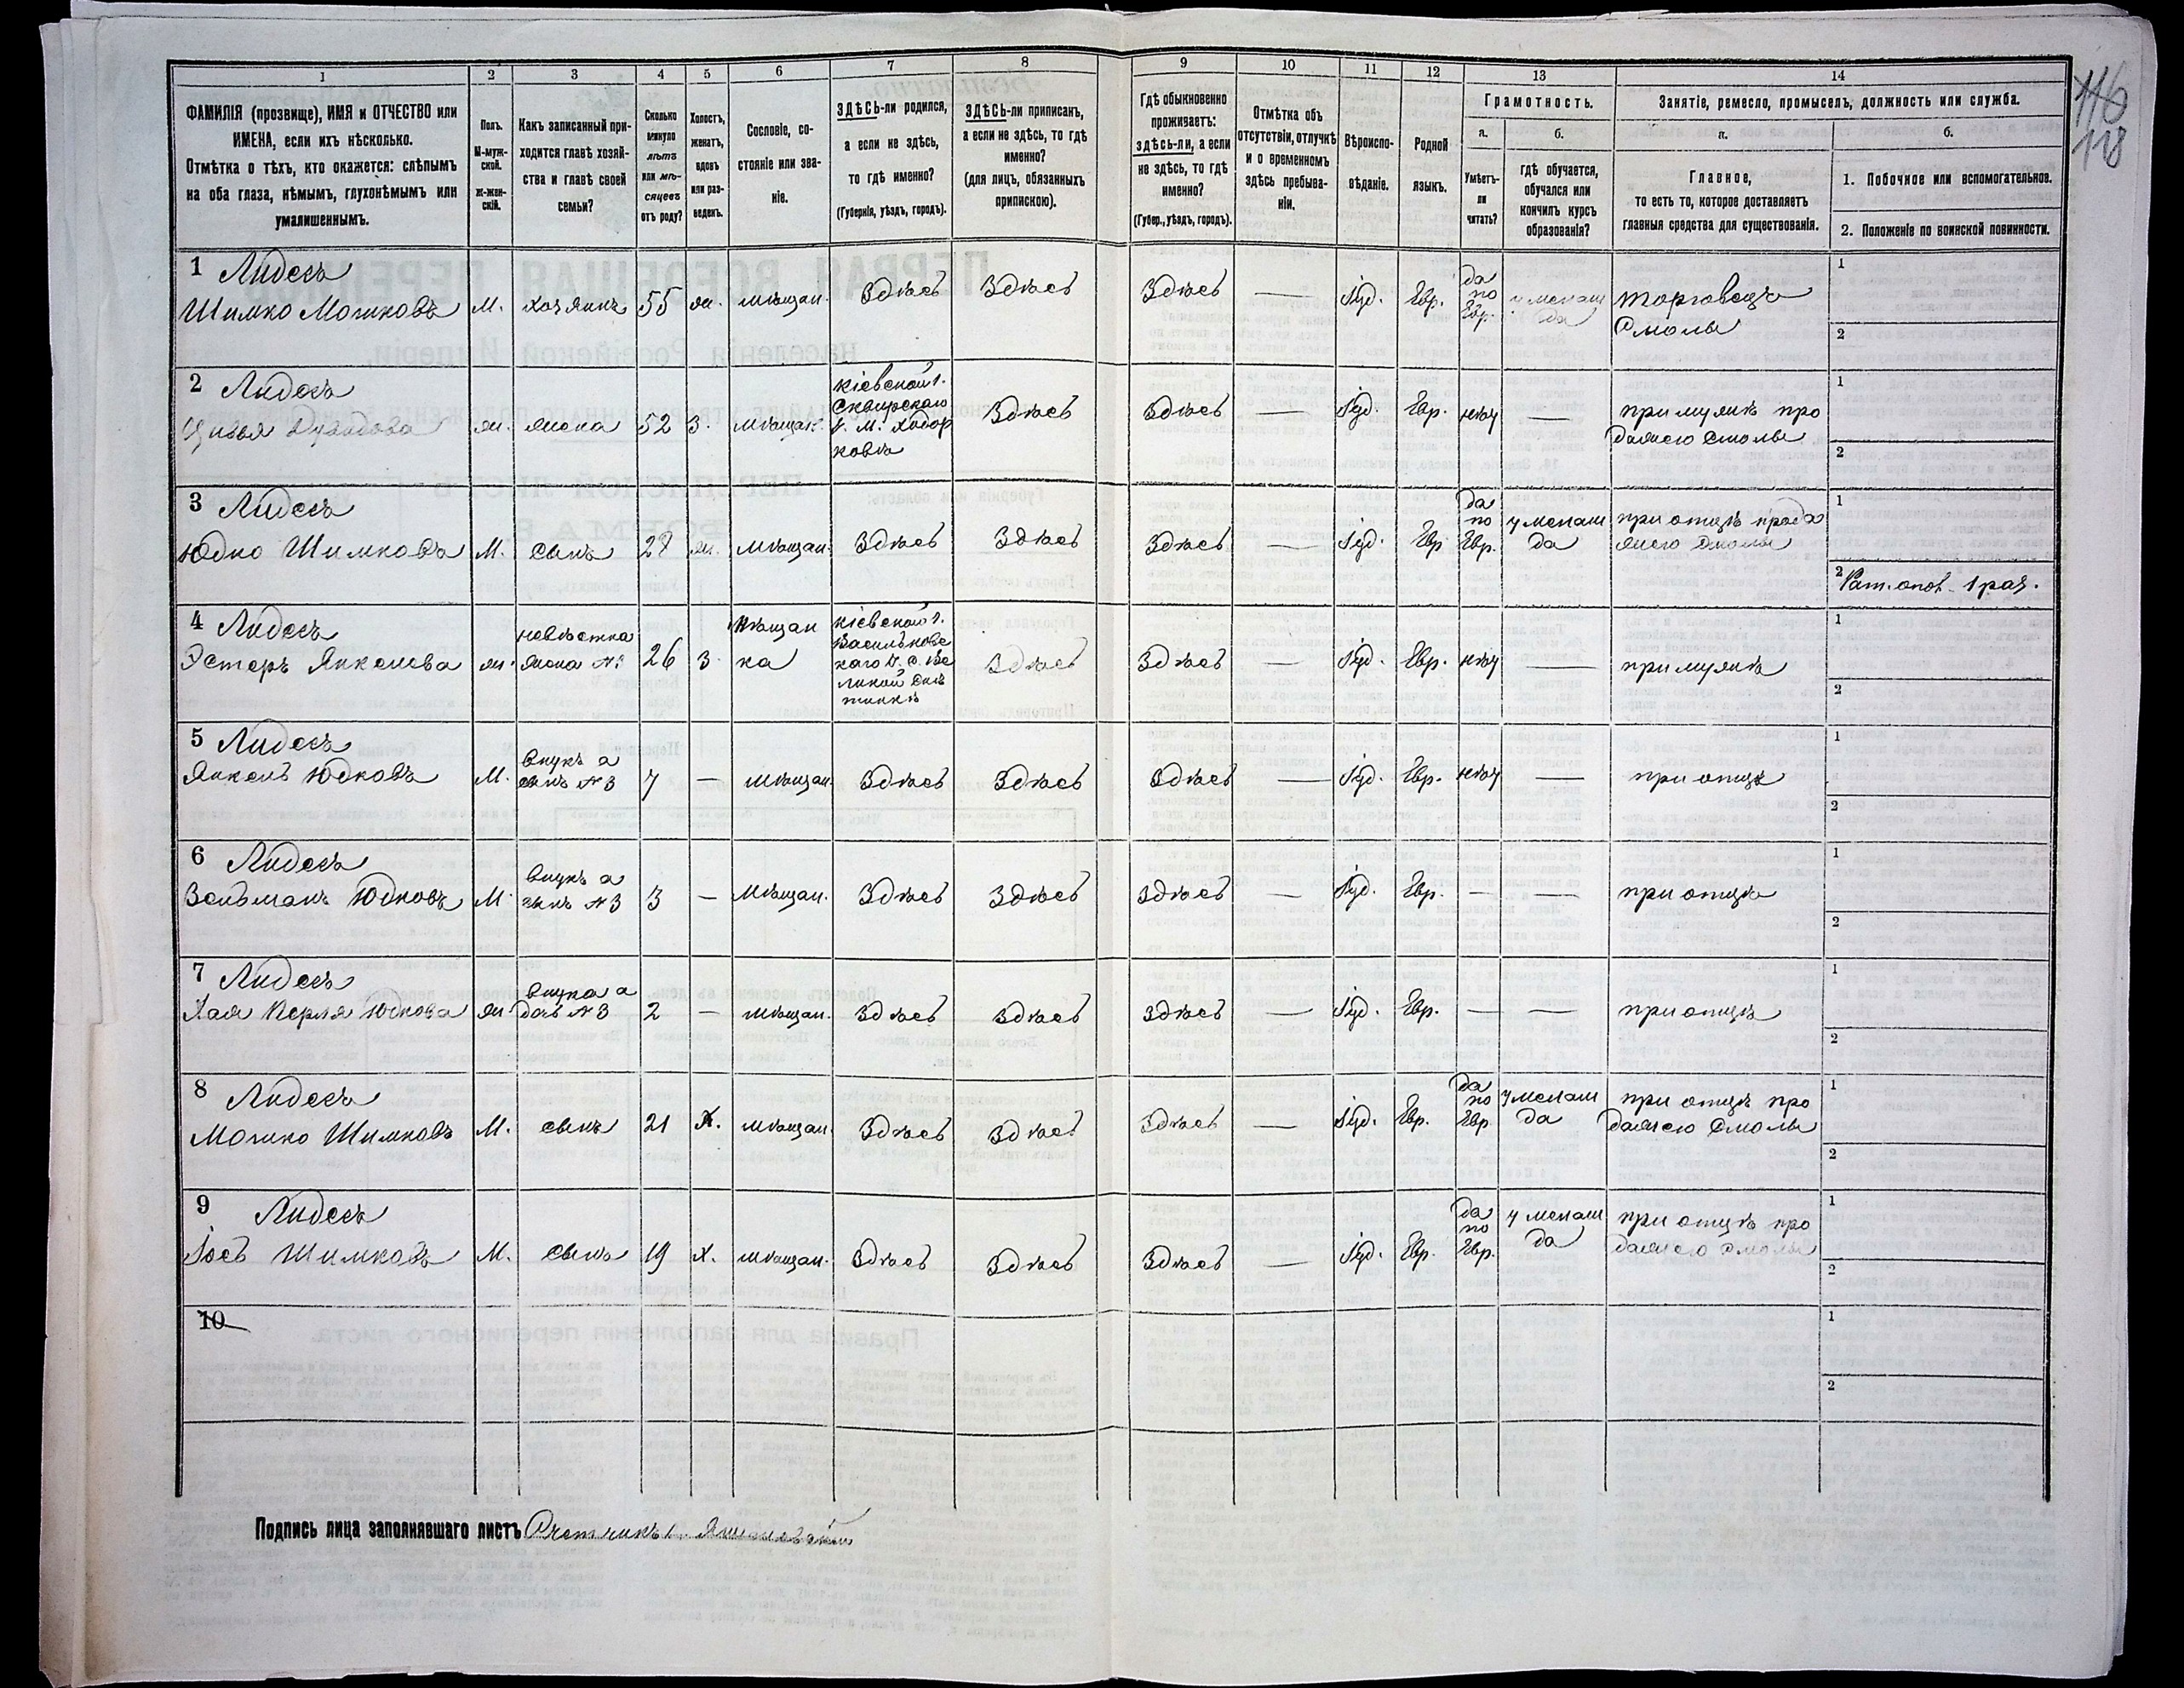 1 2 3 4 5 6 7 8 9 10 11 12 13 14
ФАМИЛІЯ (прозвище), ИМЯ и ОТЧЕСТВО или
ИМЕНА, если ихъ нѣсколько.
Отмѣтка о тѣхъ, кто окажется: слѣпымъ
на оба глаза, нѣмымъ, глухонѣмымъ или
умалишеннымъ.
Полъ.
М-муж-
ской.
ж-жен-
скій.
Какъ записанный при-
ходится главѣ хозяй-
ства и главѣ своей
семьи?
Сколько
минуло
лѣтъ
или мѣ-
сяцевъ
отъ роду?
Холостъ,
женатъ,
вдовъ
или раз-
веденъ.
Сословіе, со-
стояніе или зва-
ніе.
ЗДѢСЬ-ли родился,
а если не здѣсь,
то гдѣ именно?
(Губернія, уѣздъ, городъ).
ЗДѢСЬ-ли приписанъ,
а если не здѣсь, то гдѣ
именно?
(для лицъ, обязанныхъ
припиской).
Гдѣ обыкновенно
проживаетъ:
здѣсь-ли, а если
не здѣсь, то гдѣ
именно?
(Губер., уѣздъ, городъ).
Отмѣтка объ
отсутствіи, отлучкѣ
и о временномъ
здѣсь пребыва-
ніи.
Вѣроиспо-
вѣданіе.
Родной
языкъ.
Грамотность.
а.
Умѣетъ-
ли
читать?
б.
гдѣ обучается,
обучался или
кончилъ курсъ
образованія?
Занятіе, ремесло, промыселъ, должность или служба.
а.
Главное,
то есть то, которое доставляетъ
главныя средства для существованія.
б.
1. Побочное или вспомогательное.
2. Положеніе по воинской повинности.
116
118
1 Лидесъ
Шимко Мошковъ М. хозяинъ 55 ж. мѣщан. Здѣсь Здѣсь Здѣсь — Іуд. Евр.
да
по
Евр.
у мелам
да
торговецъ
смолы
1
2
2 Лидесъ
Цивья ж. жена 52 З. мѣщан.
Кіевской г.
Сквирскаго
у. м. Ходор
ковъ
Здѣсь Здѣсь — Іуд. Евр. нѣт —
при мужѣ про
дажею смолы
1
2
3 Лидесъ
Юдко Шимковъ М. сынъ 28 ж. мѣщан. Здѣсь Здѣсь Здѣсь — Іуд. Евр
да
по
Евр.
у мелам
да
при отцѣ прода
жею смолы
1
2 Рат. опол. 1 раз.
4 Лидесъ
Эстеръ Янкелева ж.
невѣстка
жена №3
26 З.
мѣщан
ка
Кіевской г.
Васильковс
каго у. с. Ве
ликой
Здѣсь Здѣсь — Іуд. Евр. нѣт — при мужѣ
1
2
5 Лидесъ
Янкель Юдковъ М.
внукъ а
сынъ №3
7 — мѣщан. Здѣсь Здѣсь Здѣсь — Іуд. Евр. нѣт — при отцѣ
1
2
6 Лидесъ
Зельманъ Юдковъ М.
внукъ а
сынъ №3
3 — мѣщан. Здѣсь Здѣсь Здѣсь — Іуд. Евр. — — при отцѣ
1
2
7 Лидесъ
Хая Перля Юдкова ж
внука а
доч №3
2 — мѣщан. Здѣсь Здѣсь Здѣсь — Іуд. Евр. — — при отцѣ
1
2
8 Лидесъ
Мошко Шимковъ М. сынъ 21 Х. мѣщан. Здѣсь Здѣсь Здѣсь — Іуд. Евр.
да
по
Евр
у мелам
да
при отцѣ про
дажею смолы
1
2
9 Лидесъ
Іось Шимковъ М. сынъ 19 Х. мѣщан. Здѣсь Здѣсь Здѣсь — Іуд. Евр.
да
по
Евр.
у мелам
да
при отцѣ про
дажею смолы
1
2
10
1
2
Подпись лица заполнявшаго листъ Счетчикъ